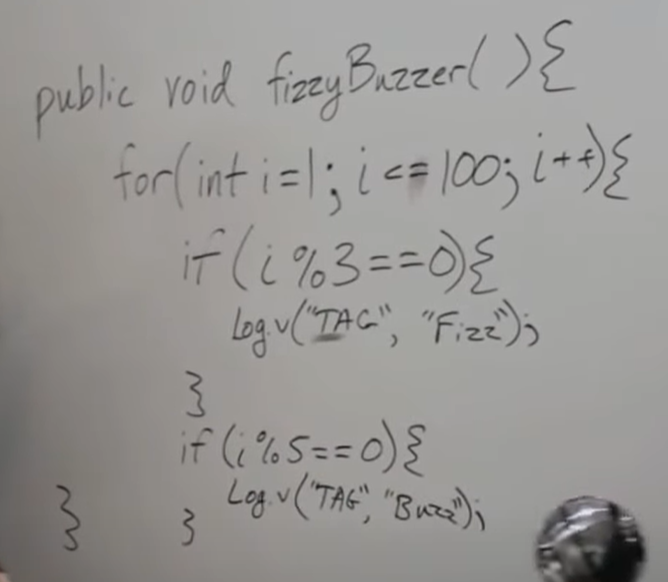 public void fizzyBuzzer( ){
for(int i=1; i <= 100; i++){
if(i%3==0){
Log.v("TAG", "Fizz");
}
if(i%5==0){
Log.v("TAG", "Buzz");
} }